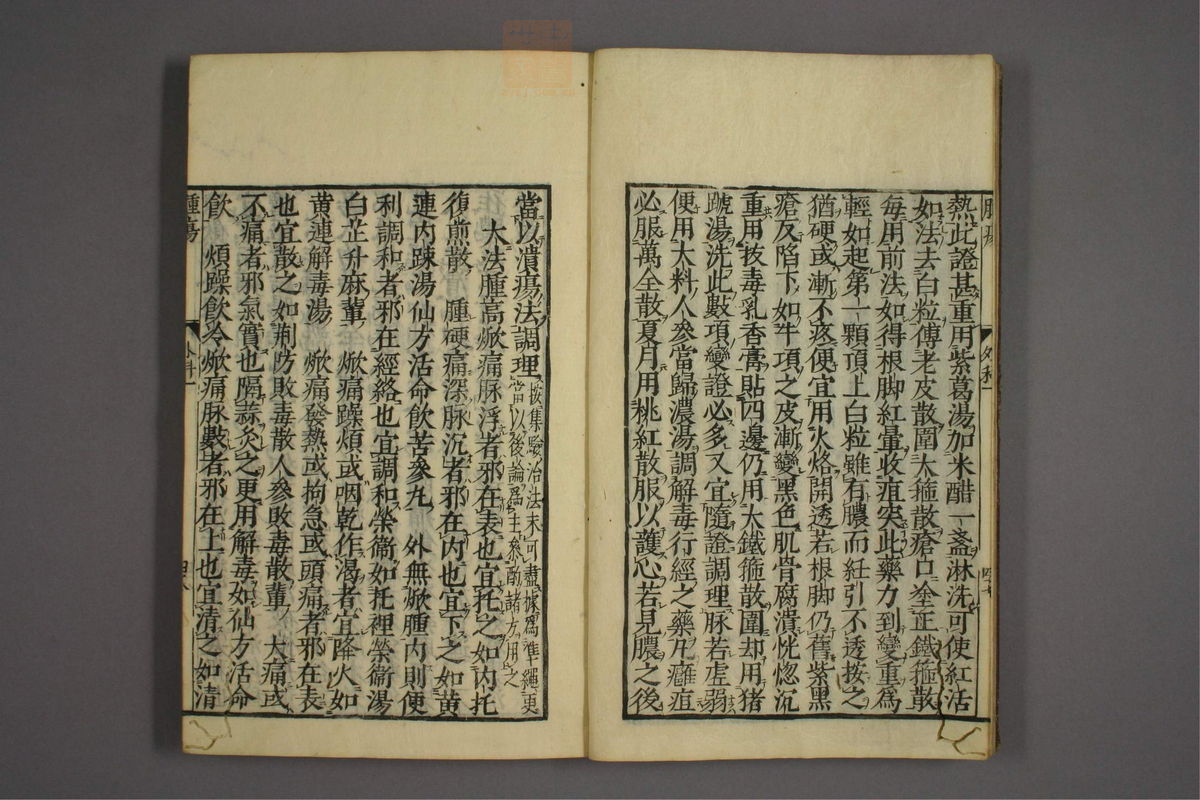 熱此證甚重用紫葛湯加米醋一盞淋洗可使紅活
如法去白粒傅老皮散圍大箍散瘡口牵正鐵箍散
每用前法如得根脚紅暈收疽突此藥力到變重爲
輕如起第一顆頂上白粒雖有膿而紝引不透按之
猶硬或漸不疼便宜用火烙開透若根脚仍舊紫黑
瘡反陷下如牛項之皮漸變黑色肌骨腐潰恍惚沉
重用拔毒乳香膏貼四邊仍用大鐵箍散圍却用猪
蹏湯洗此數項變證必多又宜隨證調理脉若虚弱
便用大料人參當歸濃湯調解毒行經之藥凡癰疽
必服萬全散夏月用桃紅散服以護心若見膿之後
當以潰瘍法調理按集驗治法未可盡據爲準繩更
當以後論爲主參酌諸方用之
大法腫高焮痛脉浮者邪在表也宜托之如内托
復煎散 腫硬痛深脉沉者邪在内也宜下之如黄
連内踈湯仙方活命飲苦參丸 外無焮腫内則便
利調和者邪在經絡也宜調和榮衛如托裡榮衛湯
白芷升麻輩 焮痛躁煩或咽乾作渴者宜降火如
黄連解毒湯 焮痛發熱或拘急或頭痛者邪在表
也宜散之如荆防敗毒散人參敗毒散輩 大痛或
不痛者邪氣實也隔蒜灸之更用解毒如仙方活命
飲 煩躁飲冷焮痛脉數者邪在上也宜清之如清
腫瘍